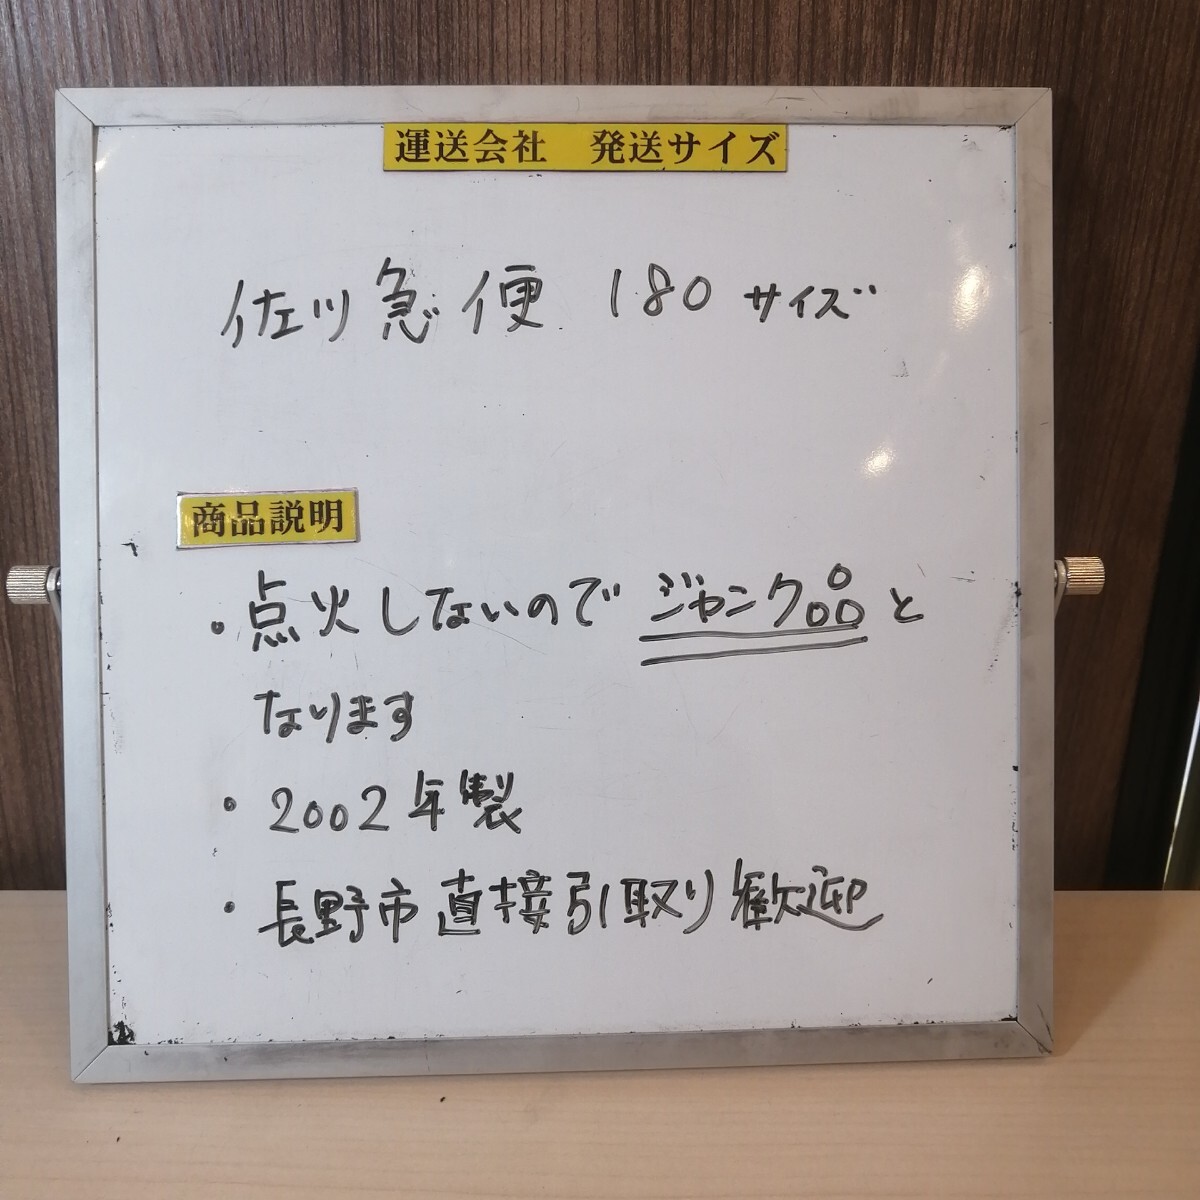 運送会社　発送サイズ
佐川急便 180 サイズ
商品説明
・点火しないのでジャンク品と
なります
・2002年製
・長野市直接引取り歓迎